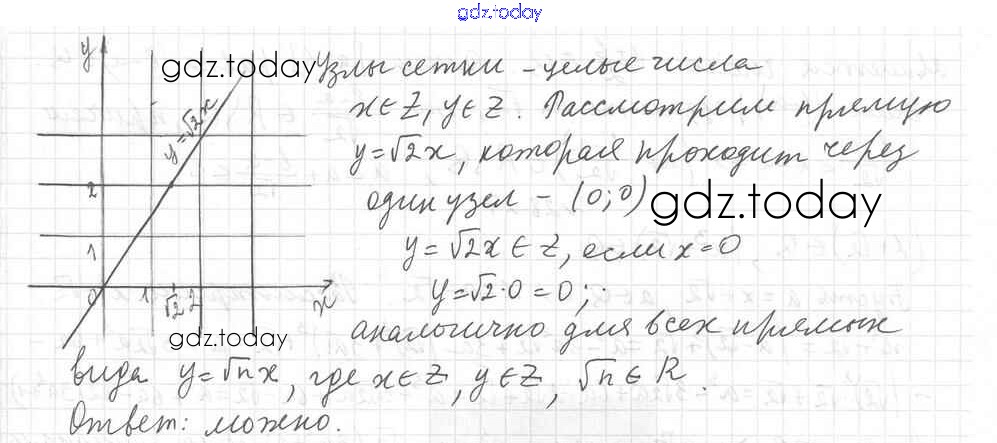 gdz.today
y
gdz.today
Узлы сетки – целые числа
x ∈ Z, y ∈ Z. Рассмотрим прямую
y = √2 x
y = √2x, которая проходит через
2
один узел – (0; 0)
gdz.today
1
y = √2x ∈ Z, если x = 0
0 1 √2 2 x
y = √2·0 = 0;
gdz.today
аналогично для всех прямых
вида y = √n x, где x ∈ Z, y ∈ Z, √n ∈ R.
Ответ: можно.